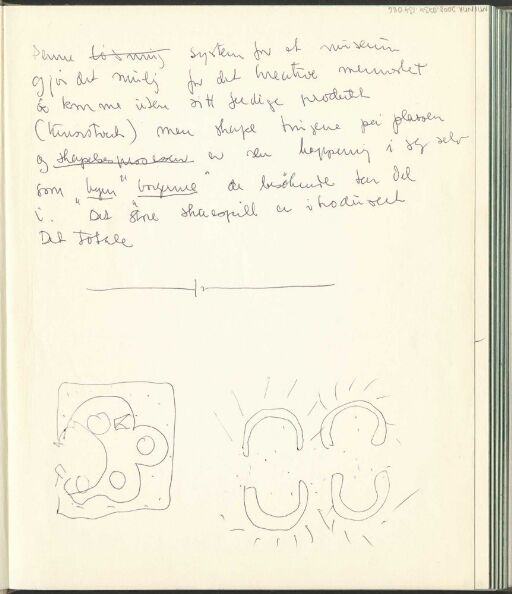 Denne løsning system for et museum
gjør det mulig for det kreative mennesket
å komme uten sitt ferdige produkt
(kunstverk) men skape tingene på plassen
og skapelsesprosessen er en happening i seg selv
som "byen" "borgerne" de besökende tar del
i. "Det store skuespill er introdusert
Det totale